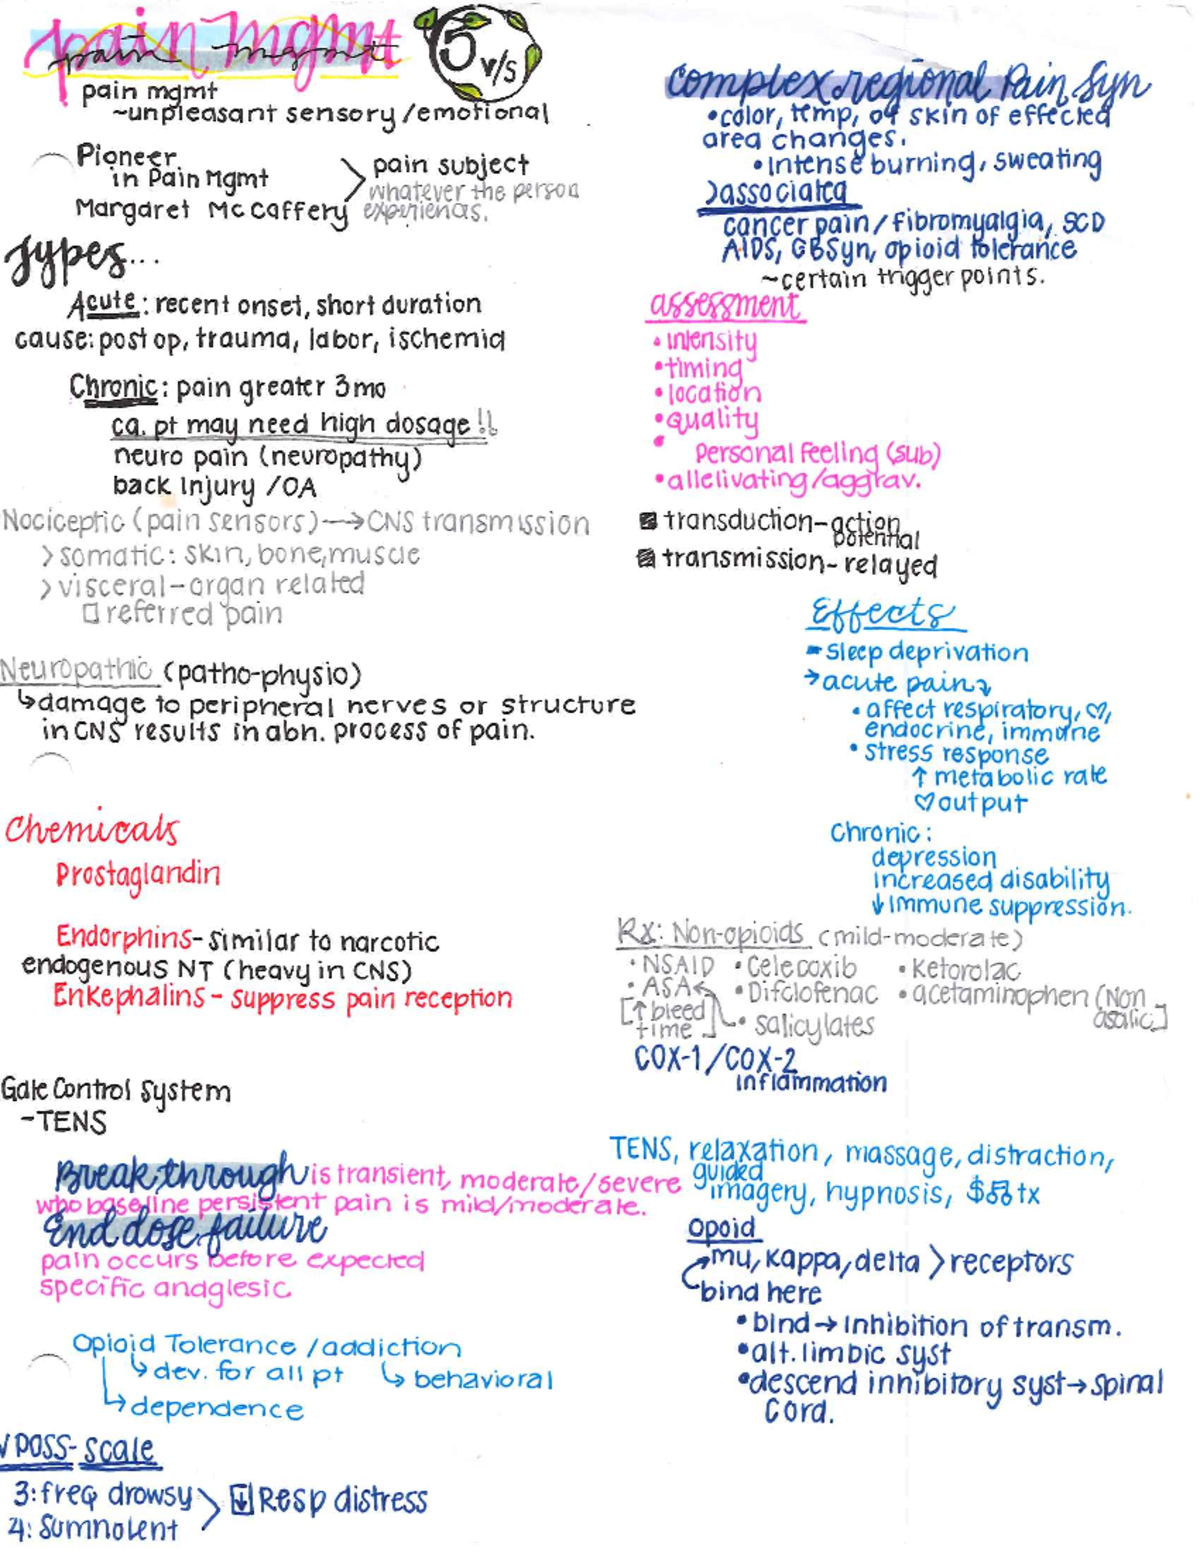 pain mgmt
5 v/s
pain mgmt
~unpleasant sensory/emotional
Pioneer
in Pain Mgmt
Margaret McCaffery
> pain subject
whatever the person
experiences.
Types...
Acute: recent onset, short duration
cause: post op, trauma, labor, ischemia
Chronic: pain greater 3mo
ca. pt may need high dosage!!
neuro pain (neuropathy)
back Injury/OA
Nociceptic (pain sensors) → CNS transmission
> somatic: skin, bone, muscle
> visceral-organ related
□ referred pain
Neuropathic (patho-physio)
↳ damage to peripheral nerves or structure
in CNS results in abn. process of pain.
Chemicals
Prostaglandin
Endorphins- similar to narcotic
endogenous NT (heavy in CNS)
Enkephalins - suppress pain reception
Gate Control System
-TENS
Breakthrough is transient, moderate/severe
who baseline persistent pain is mild/moderate.
End dose failure
pain occurs before expected
specific anaglesic
Opioid Tolerance/addiction
↳ dev. for all pt ↳ behavioral
↳ dependence
√ POSS-scale
3: freq drowsy
4: Sumnolent
> ↓ Resp distress
complex regional Pain Syn
• color, temp, of skin of effected
area changes.
• Intense burning, sweating
> associated
cancer pain/fibromyalgia, SCD
AIDS, GBSyn, opioid tolerance
~certain trigger points.
assessment
• intensity
• timing
• location
• quality
• Personal Feeling (sub)
• allelivating/aggrav.
■ transduction-action
potential
■ transmission-relayed
Effects
- Sleep deprivation
→ acute pain ↴
• affect respiratory, ♡,
endocrine, immune
• stress response
↑ metabolic rate
♡ output
Chronic:
depression
increased disability
↓ immune suppression.
Rx: Non-opioids (mild-moderate)
• NSAID • Celecoxib • Ketorolac
• ASA • Difclofenac • acetaminophen (Non
asalic]
[↑ bleed
time] • salicylates
COX-1/COX-2
inflammation
TENS, relaxation, massage, distraction,
guided
imagery, hypnosis, tx
opoid
mu, Kappa, delta > receptors
bind here
• bind → inhibition of transm.
• alt. limbic syst
• descend inhibitory syst → spinal
cord.